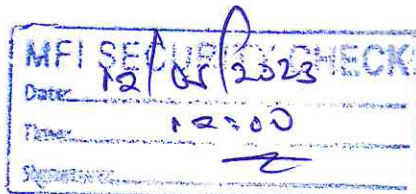 MFI SECURITY CHECK
Date: 12/05/2023
Time: 12:00
Signature